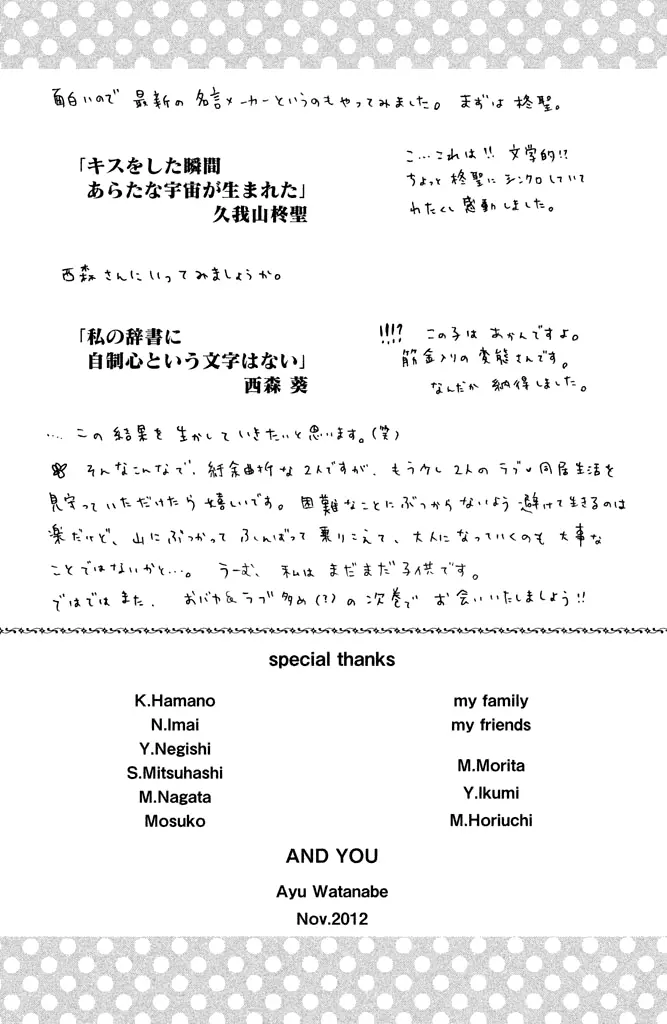 面白いので 最新の 名言メーカーというのもやってみました。 まずは 柊聖。
「キスをした瞬間
あらたな宇宙が生まれた」
久我山柊聖
こ…これは!! 文学的!?
ちょっと 柊聖に シンクロしていて
わたくし 感動しました。
西森さんにいってみましょうか。
「私の辞書に
自制心という文字はない」
西森 葵
!!!? この子は あかんですよ。
筋金入りの 変態さんです。
なんだか 納得しました。
… この 結果を 生かして いきたいと思います。(笑)
そんなこんなで、紆余曲折な2人ですが、もう少し 2人の ラブ♥同居生活を
見守って いただけたら 嬉しいです。 困難なことに ぶつからないよう 避けて生きるのは
楽だけど、山に ぶつかって ふんばって 乗りこえて、大人に なっていくのも 大事な
ことではないかと…。 うーむ、私は まだまだ 子供です。
ではでは また、 おバカ&ラブ 多め(?)の 次巻で お会いいたしましょう!!
special thanks
K.Hamano
N.Imai
Y.Negishi
S.Mitsuhashi
M.Nagata
Mosuko
my family
my friends
M.Morita
Y.Ikumi
M.Horiuchi
AND YOU
Ayu Watanabe
Nov.2012